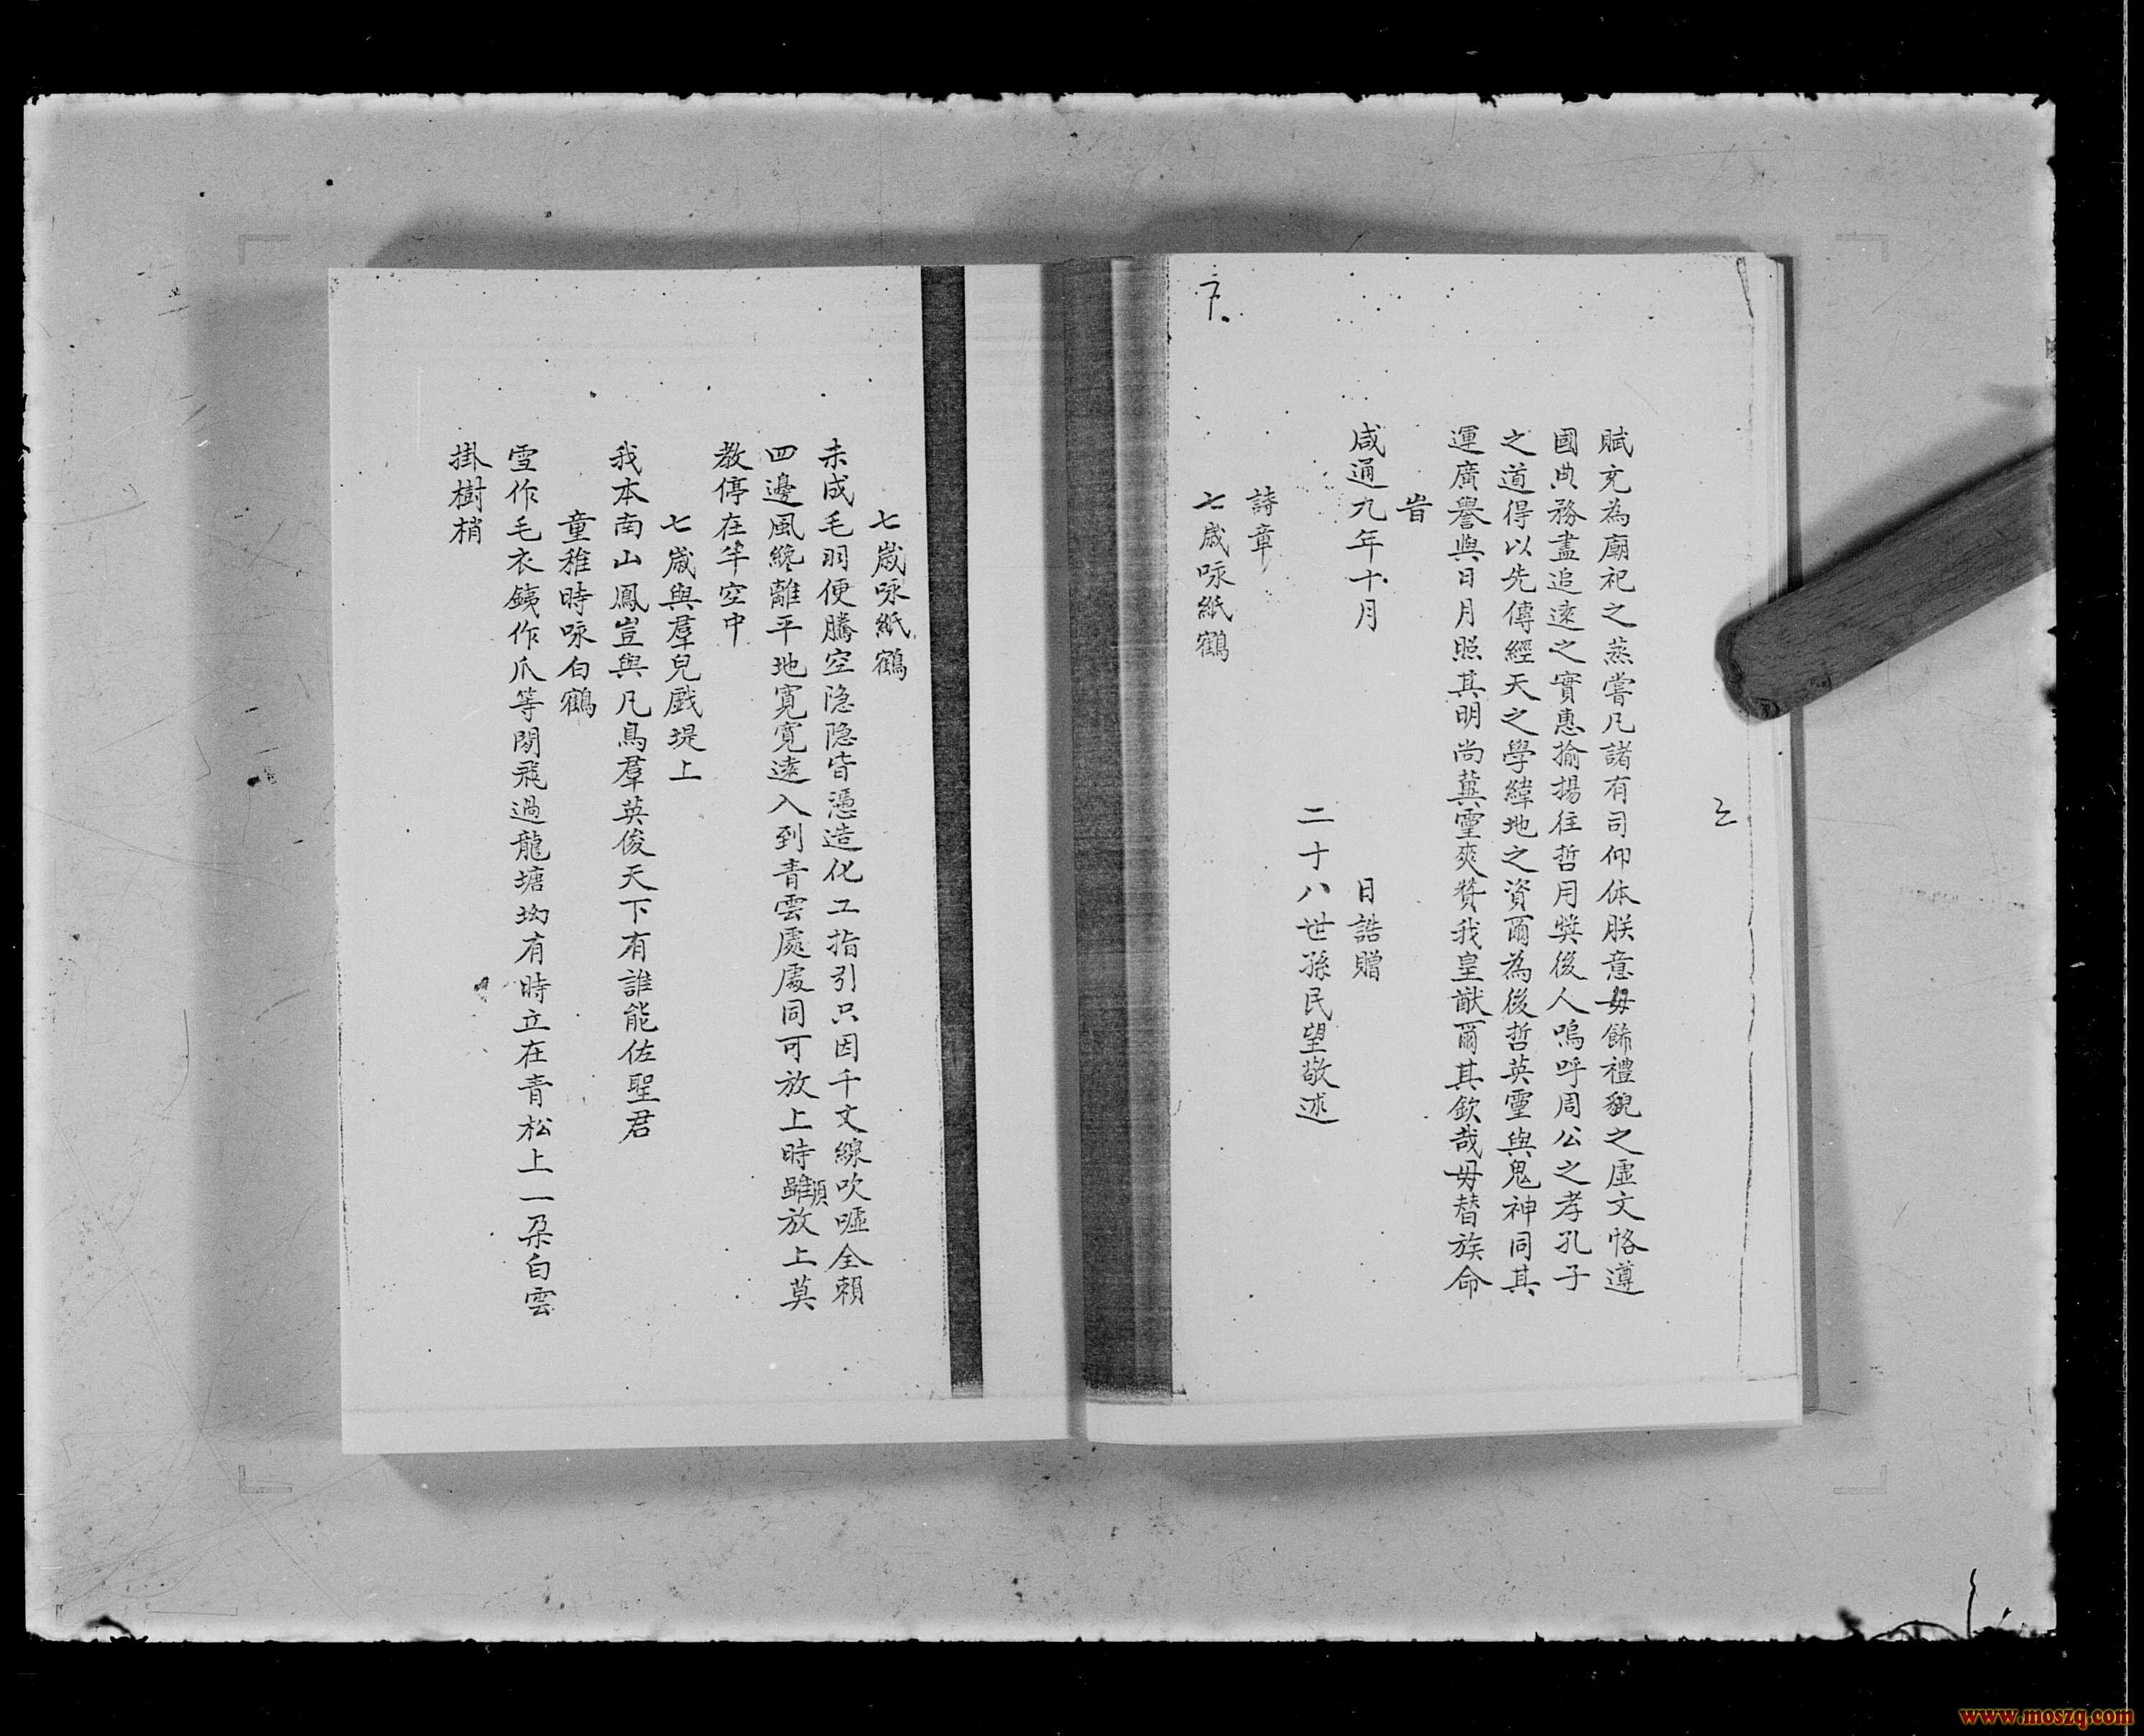 賦充為廟祀之蒸嘗凡諸有司仰体朕意毋飾禮貌之虛文恪遵
國典務盡追遠之實惠揄揚往哲用獎後人嗚呼周公之孝孔子
之道得以先傳經天之學緯地之資爾為後哲英霊與鬼神同其
運廣譽與日月照其明尚冀霊爽贊我皇猷爾其欽哉毋替族命
旹
咸通九年十月 日誥贈
二十八世孫民望敬述
詩章
七歲咏紙鶴
七歲咏紙鶴
未成毛羽便騰空隐隐皆憑造化工指引只因千文線吹噓全賴
四邊風纔離平地寬寬遠入到青雲處處同可放上時雖須放上莫
教停在半空中
七歲與羣兒戲堤上
我本南山鳳豈與凡鳥羣英俊天下有誰能佐聖君
童稚時咏白鶴
雪作毛衣銕作爪等閒飛過龍塘坳有時立在青松上一朶白雲
掛樹梢
www.moszq.com